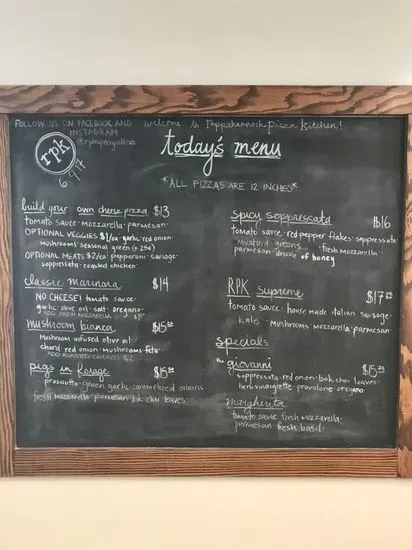 FOLLOW US ON FACEBOOK AND INSTAGRAM
welcome to rappahannock pizza kitchen!
rpk
6 9 17
today's menu
*ALL PIZZAS ARE 12 INCHES*
build your own cheese pizza $13
tomato sauce · mozzarella · parmesan
OPTIONAL VEGGIES $1/ea · garlic · red onion ·
mushrooms · seasonal green (+.25¢)
OPTIONAL MEATS $2/ea · pepperoni · sausage
soppressata · roasted chicken
classic marinara $14
NO CHEESE! tomato sauce ·
garlic · olive oil · salt · oregano ·
ADD FRESH MOZZARELLA
mushroom bianca $15.50
Mushroom infused olive oil ·
chard · red onion · mushrooms · feta
ADD ROASTED CHICKEN $2
pigs in forage $15.50
prosciutto · green garlic · caramelized onions
fresh mozzarella · parmesan · bok choi leaves
spicy soppressata $16
tomato sauce · red pepper flakes · soppressata
mustard greens · fresh mozzarella ·
parmesan · drizzle of honey
RPK supreme
tomato sauce · house made italian sausage ·
kale · mushrooms · mozzarella · parmesan
specials
the giovanni
soppressata · red onion · bok choi leaves
herb vinaigrette · provolone · oregano
margherita
tomato sauce · fresh mozzarella ·
parmesan · fresh basil ·